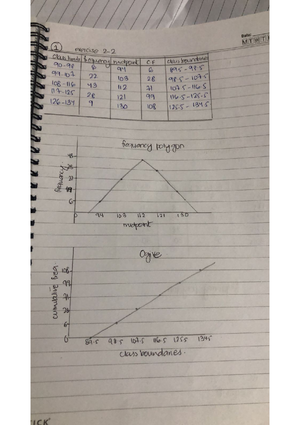 Date:
M T W T F
1 exercise 2-2
class limits frequency midpoint CF class boundaries
90-98 6 94 6 89.5-98.5
99-107 22 103 28 98.5-107.5
108-116 43 112 71 107.5-116.5
117-125 28 121 99 116.5-125.5
126-134 9 130 108 125.5-134.5
frequency polygon
frequency
6
94 103 112 121 130
midpoint
Ogive
cumulative freq
6
89.5 98.5 107.5 116.5 125.5 134.5
class boundaries.